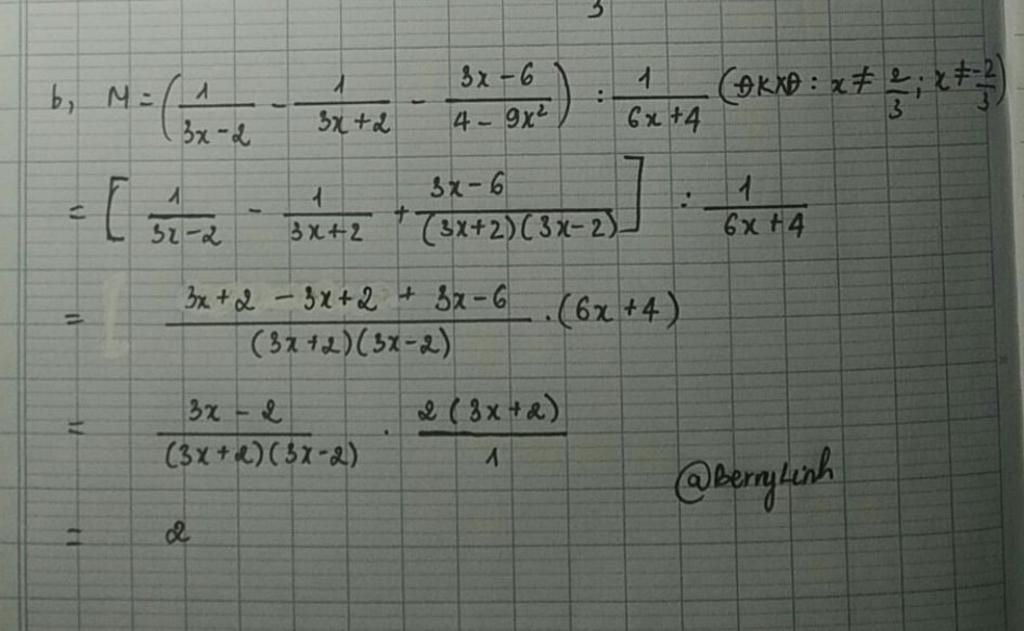 3
b, M = (1/(3x-2) - 1/(3x+2) - (3x-6)/(4-9x²)) : 1/(6x+4) (ĐKXĐ: x ≠ 2/3; x ≠ -2/3)
= [1/(3x-2) - 1/(3x+2) + (3x-6)/((3x+2)(3x-2))] : 1/(6x+4)
= (3x+2 - 3x+2 + 3x-6)/((3x+2)(3x-2)) . (6x+4)
= (3x-2)/((3x+2)(3x-2)) . 2(3x+2)/1
@BerryLinh
= 2